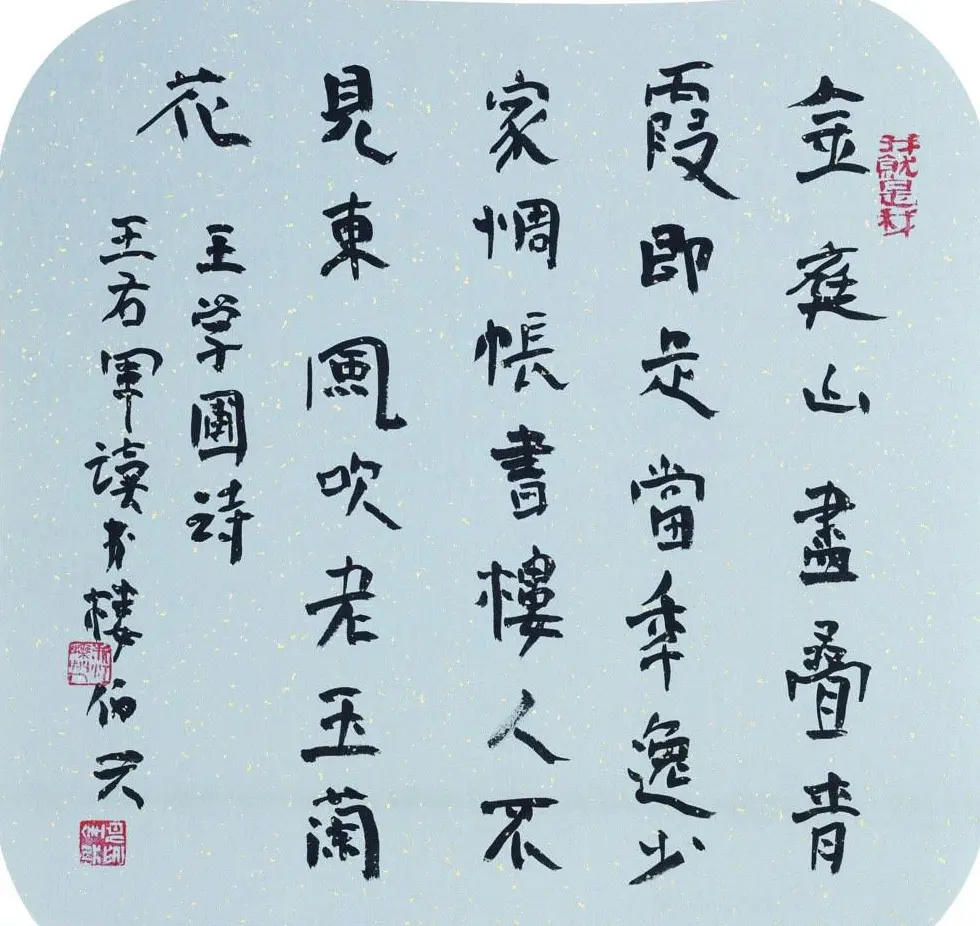 我就是我
金庭山盡疊青
霞即是當年逸少
家惆帳書樓人不
見東風吹老玉蘭
花
王学圃詩
王右軍讀书楼